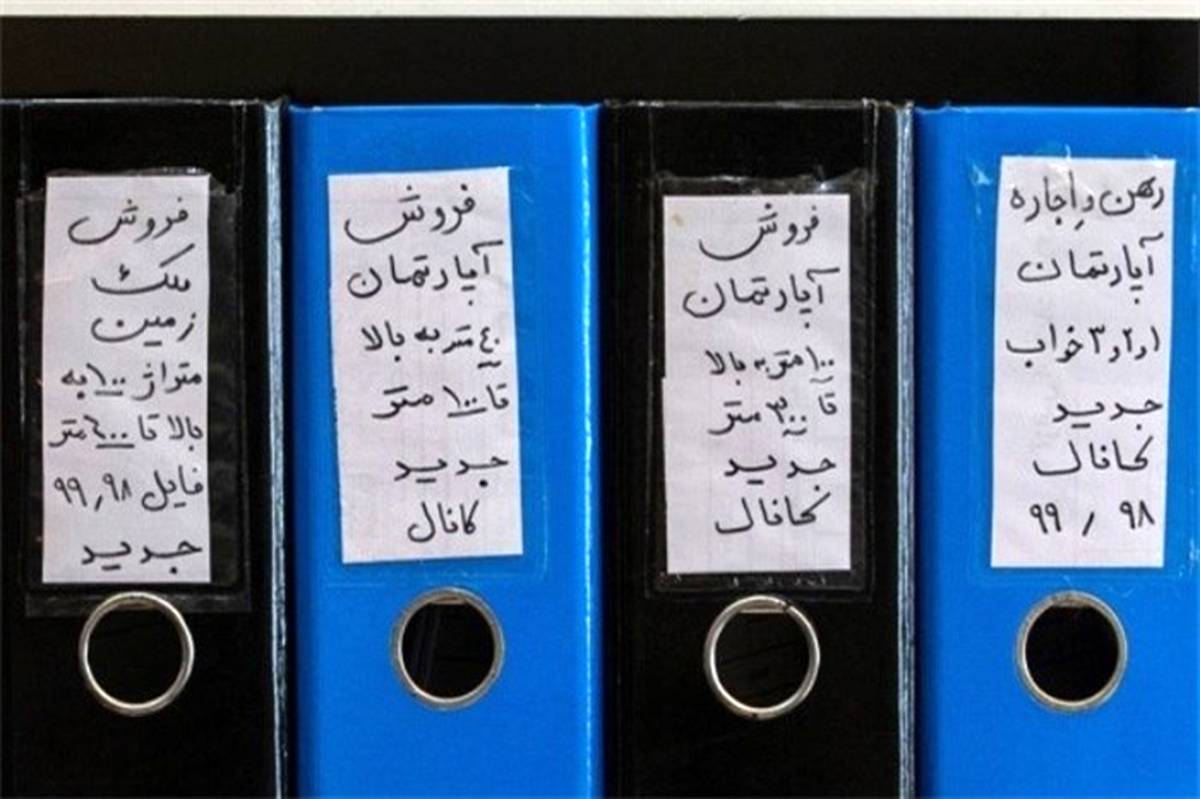 رهن و اجاره
آپارتمان
۱و۲و۳ خواب
جدید
کانال
۹۸ ر ۹۹
فروش
آپارتمان
۱۰۰ متر به بالا
تا ۳۰۰ متر
جدید
کانال
فروش
آپارتمان
۴۰ متر به بالا
تا ۱۰۰ متر
جدید
کانال
فروش
ملک
زمین
متراژ ۱۰۰ به
بالا تا ۶۰۰ متر
فایل ۹۸ ر ۹۹
جدید